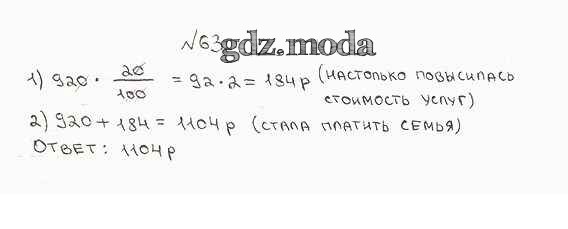 №63
gdz.moda
1) 920 · 20/100 = 92 · 2 = 184р (настолько повысилась
стоимость услуг)
2) 920 + 184 = 1104р (стала платить семья)
Ответ: 1104р